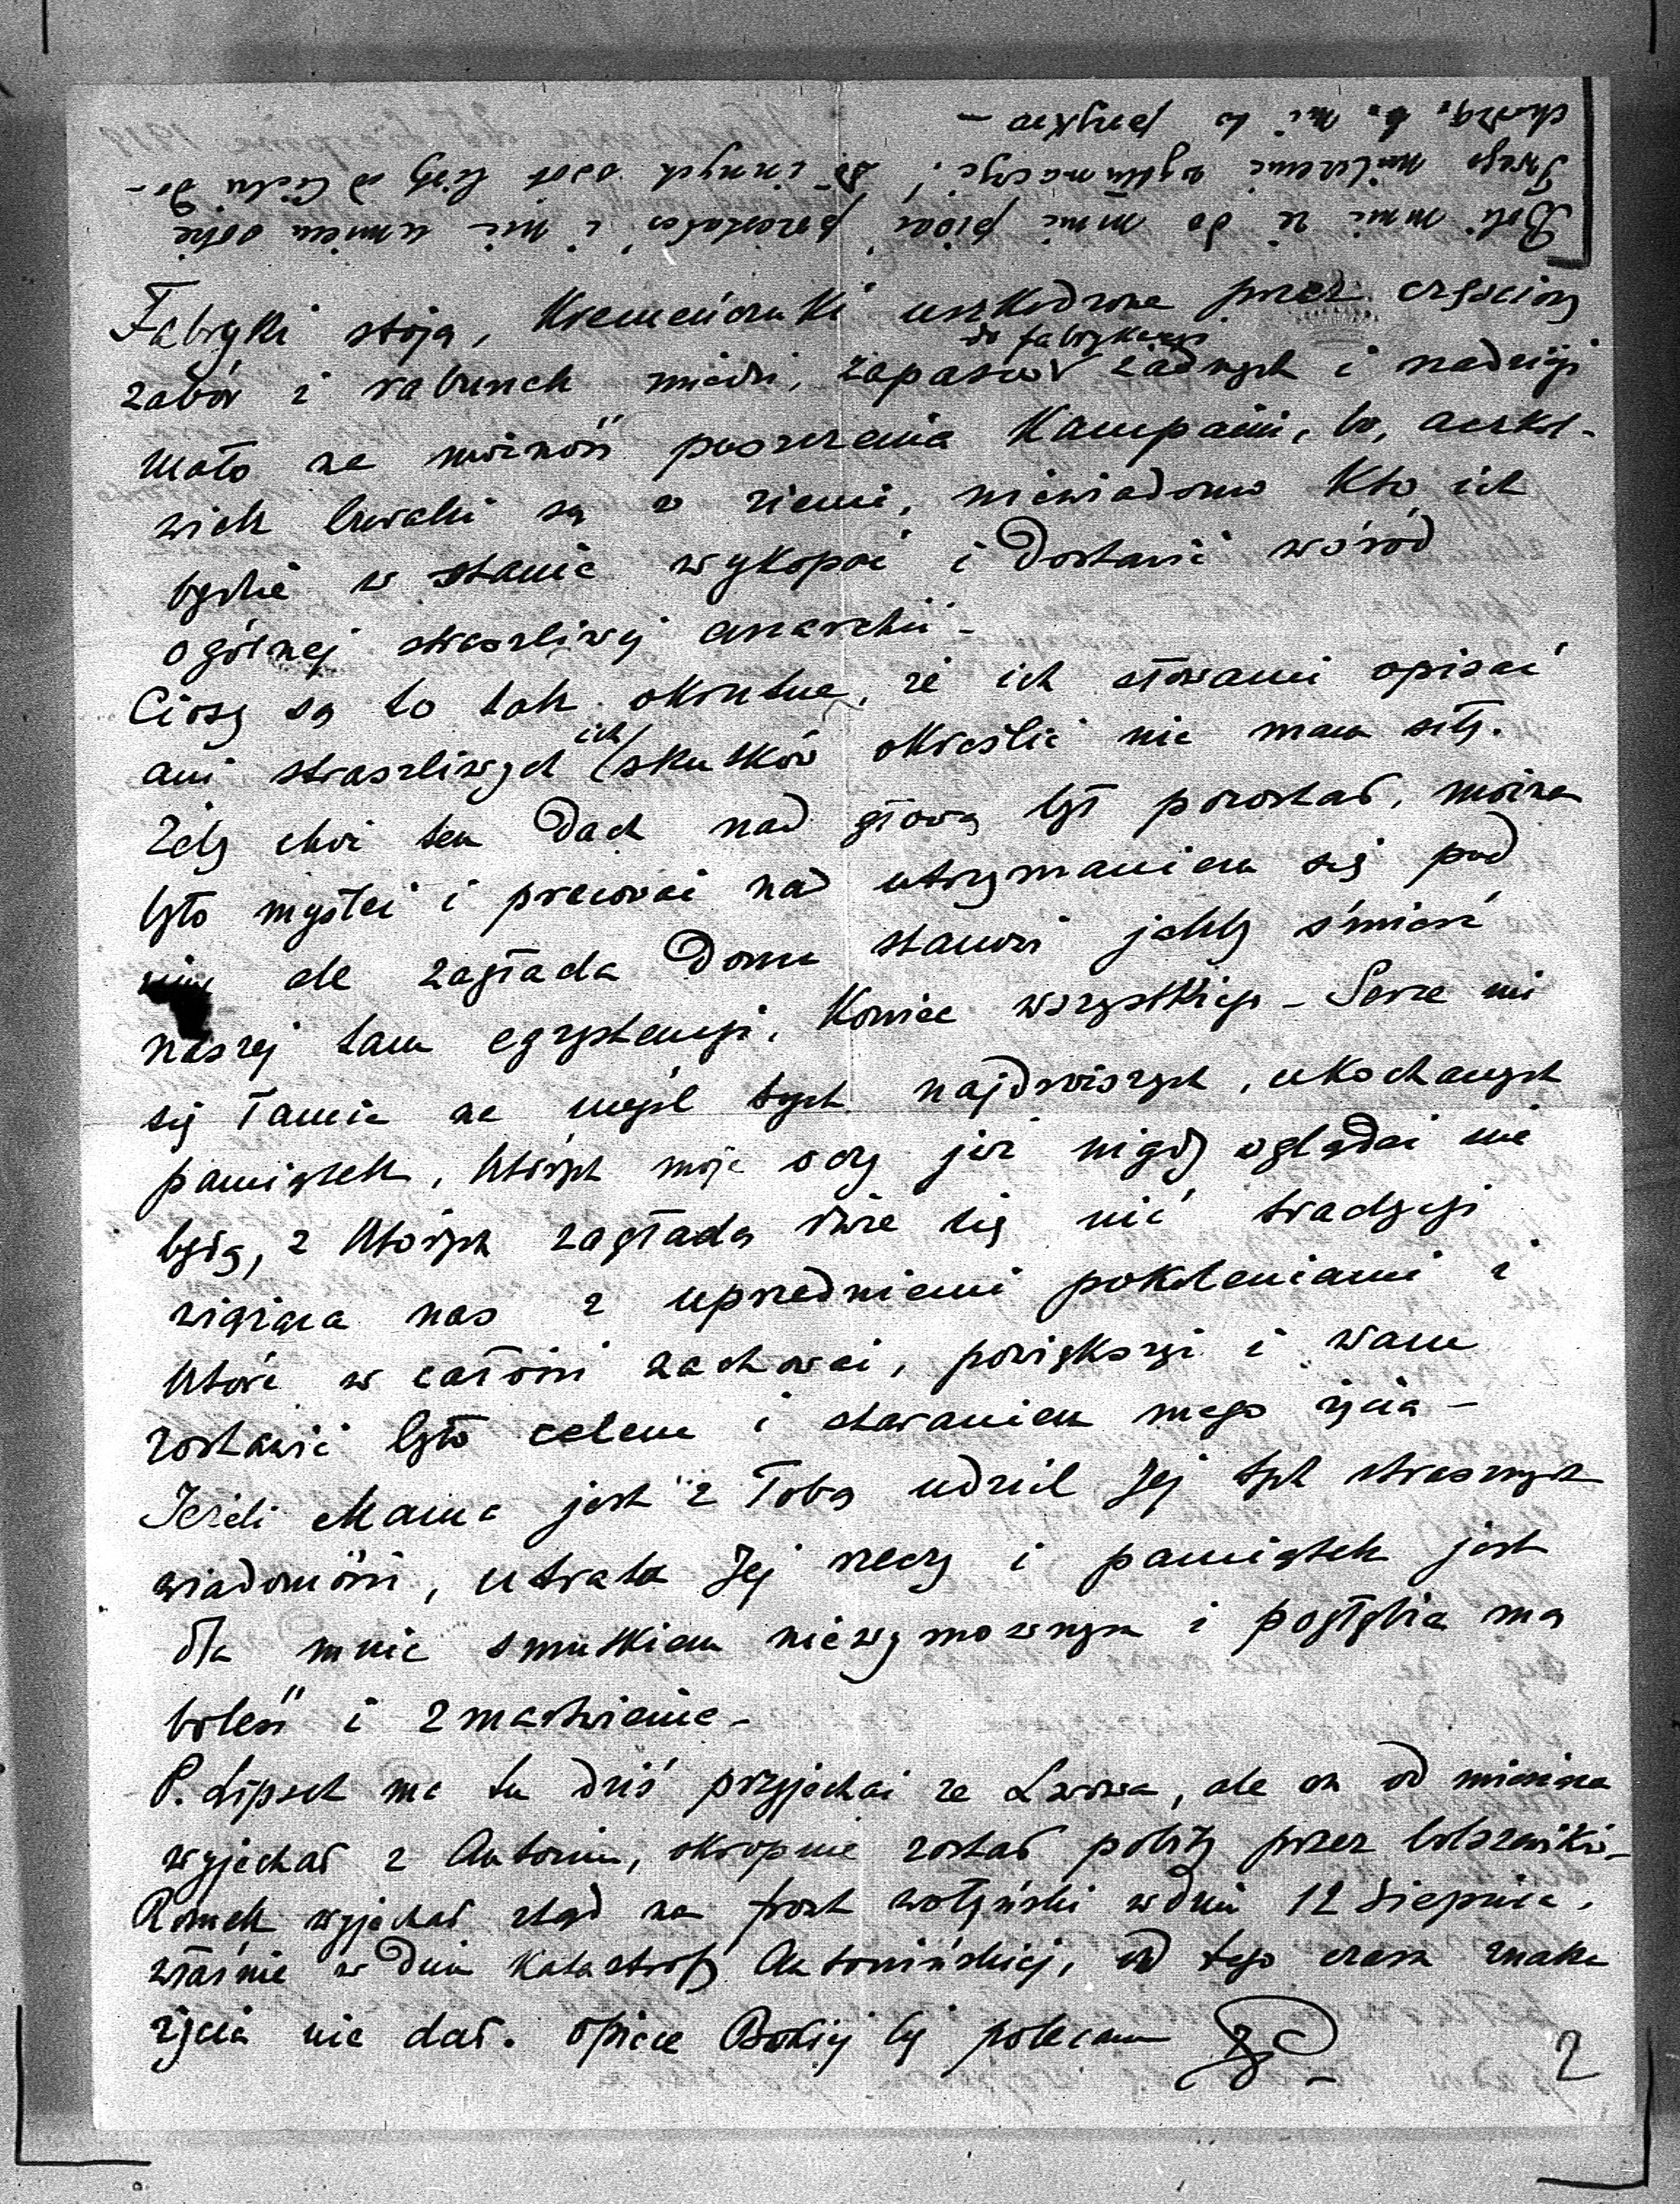 Boli mnie że do mnie pisać przestałaś, i nie umiem sobie
Twego milczenia wytłumaczyć; od innych osób listy od Ciebie do-
chodzą, a mi to przykro —
Fabryki stoją, Kremeńczuki uszkodzone przez częściowy
zabór i rabunek miedzi, zapasów do fabrykacyi żadnych i nadzieji
mało na możność puszczenia Kampanii, bo, aczkol-
wiek buraki są w ziemi, niewiadomo kto ich
będzie w stanie wykopać i dostawić wśród
ogólnej straszliwej anarchii —
Ciosy są to tak okrutne, że ich słowami opisać
ani straszliwych ich skutków określić nie mam siły.
Żeby choć ten dach nad głową był pozostał, można
było myśleć i pracować nad utrzymaniem się pod
nim ale zagłada domu stanowi jakby śmierć
naszej tam egzystencyi, koniec wszystkiego — Serce mi
się łamie na myśl tych najdroższych, ukochanych
pamiątek, których moje oczy już nigdy oglądać nie
będą, z których zagładą rwie się nić tradycyi
wiążąca nas z uprzedniemi pokoleniami i
które w całości zachować, powiększyć i wam
zostawić było celem i staraniem mego życia —
Jeżeli Mama jest z Tobą udziel Jej tych strasznych
wiadomości, utrata Jej rzeczy i pamiątek jest
dla mnie smutkiem niewymownym i pogłębia mą
boleść i zmartwienie —
P. Lipsch ma tu dziś przyjechać ze Lwowa, ale on od miesiąca
wyjechał z Antonin, okropnie został pobity przez bolszewików
Romek wyjechał ztąd na front wołyński w dniu 12 Sierpnia,
właśnie w dniu katastrofy Antonińskiej, od tego czasu znaku
życia nie dał. Opiece Boskiej Cię polecam
2